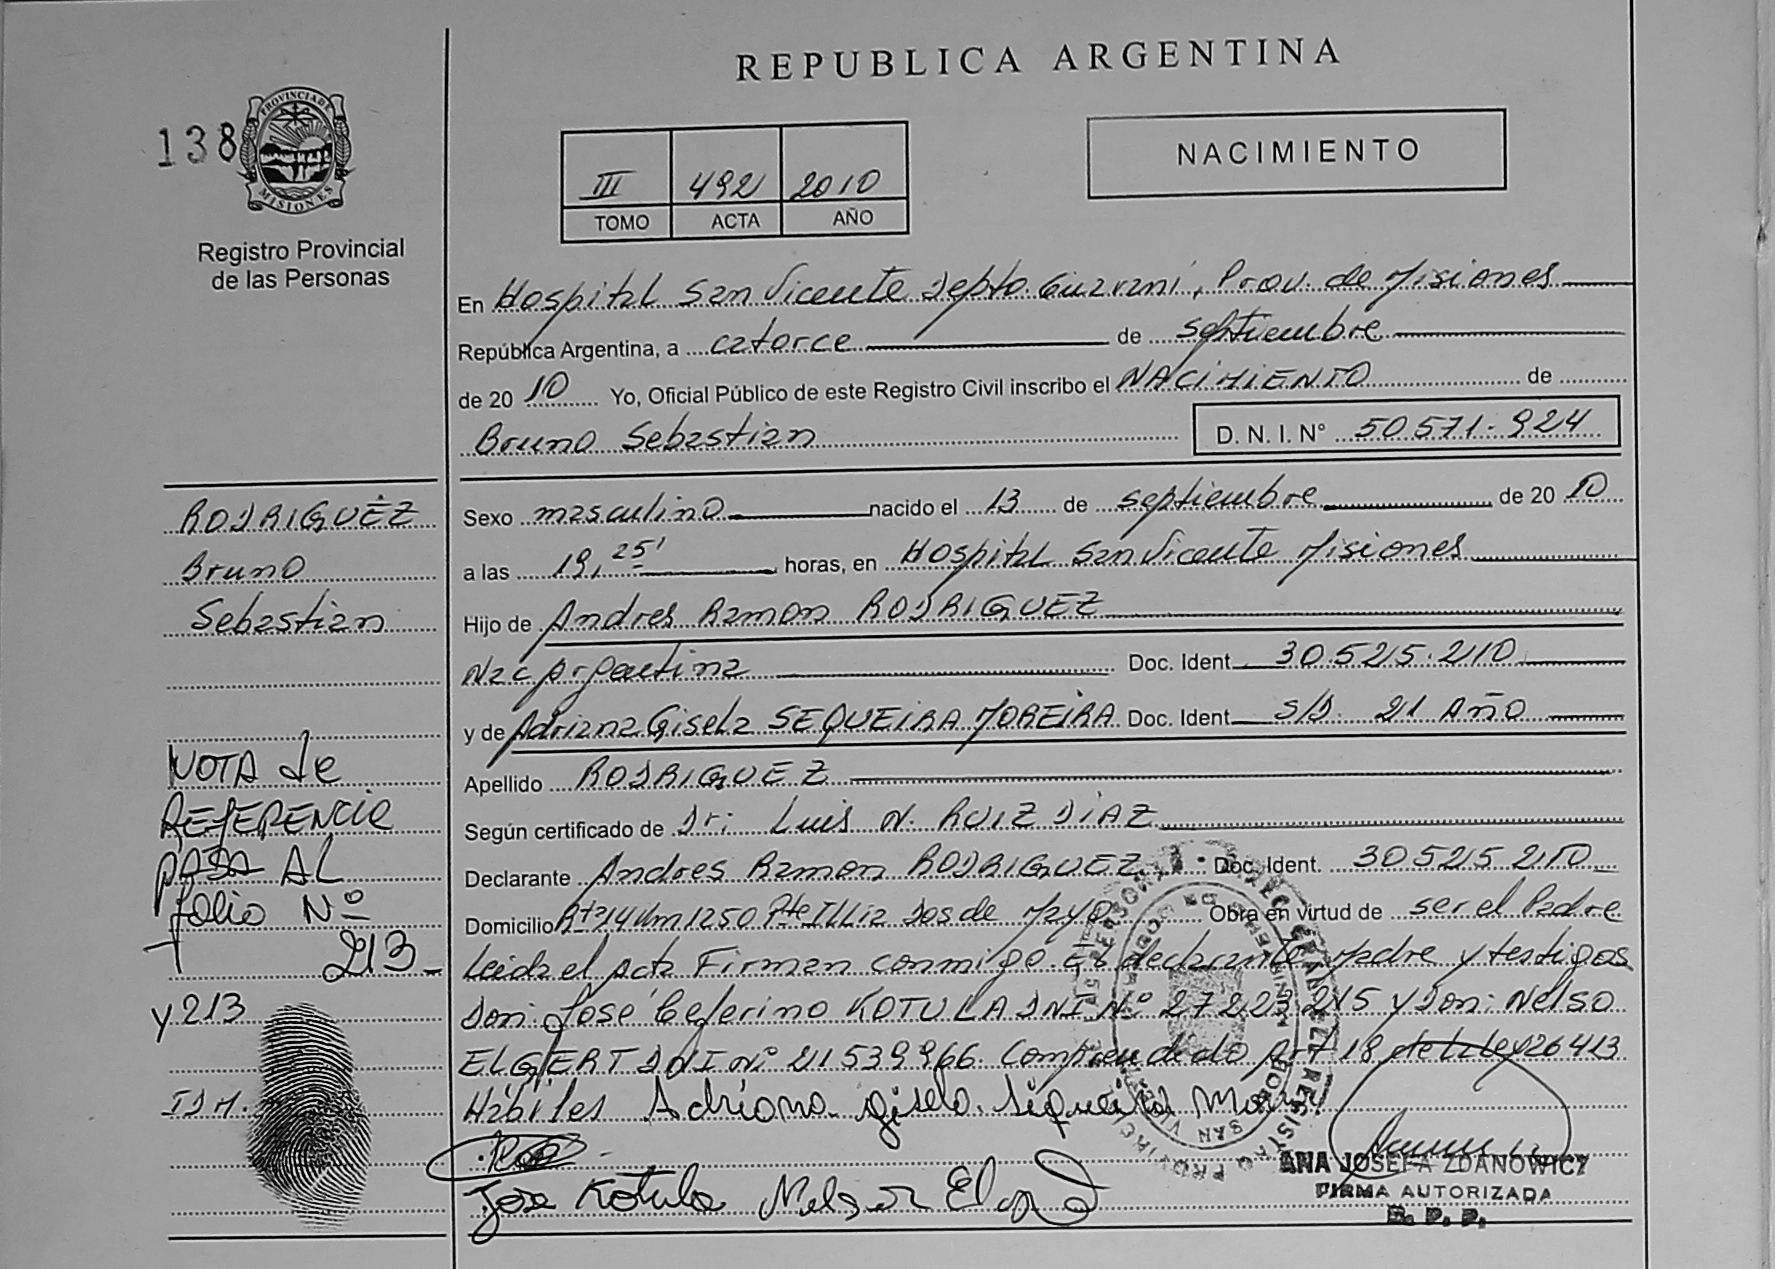 REPUBLICA ARGENTINA
138
PROVINCIA DE
MISIONES
Registro Provincial
de las Personas
III 492 2010
TOMO ACTA AÑO
NACIMIENTO
En Hospital San Vicente Depto. Guaraní, Prov. de Misiones
República Argentina, a catorce de septiembre
de 2010 Yo, Oficial Público de este Registro Civil inscribo el NACIMIENTO de
Bruno Sebastian D. N. I. N° 50571.924
RODRIGUEZ
Bruno
Sebastian
Sexo masculino nacido el 13 de septiembre de 2010
a las 19,25' horas, en Hospital San Vicente Misiones
Hijo de Andres Ramon RODRIGUEZ
Nac Argentina Doc. Ident. 30.525.210
y de Adriana Gisela SEQUEIRA MOREIRA Doc. Ident. S/D. 21 AÑO
Apellido RODRIGUEZ
Según certificado de Dr: Luis N. RUIZ DIAZ
Declarante Andres Ramon RODRIGUEZ Doc. Ident. 30525210
Domicilio Rta 14 Km 1250 Dos de Mayo Obra en virtud de ser el Padre
Leida el Acta Firman conmigo El declarante Madre y testigos
Don: José Ceferino KOTULA DNI N° 27223215 y Don: Nelso
ELGERT DNI N° 21539966. Comprendido Art 18 de la Ley 26413
Hábiles Adriana gisela
NOTA de
REFERENCIA
PASA AL
folio N°
213
y 213
I D M.
Jose Kotula Nelson
ANA JOSEFA ZDANOWICZ
FIRMA AUTORIZADA
R. P. P.